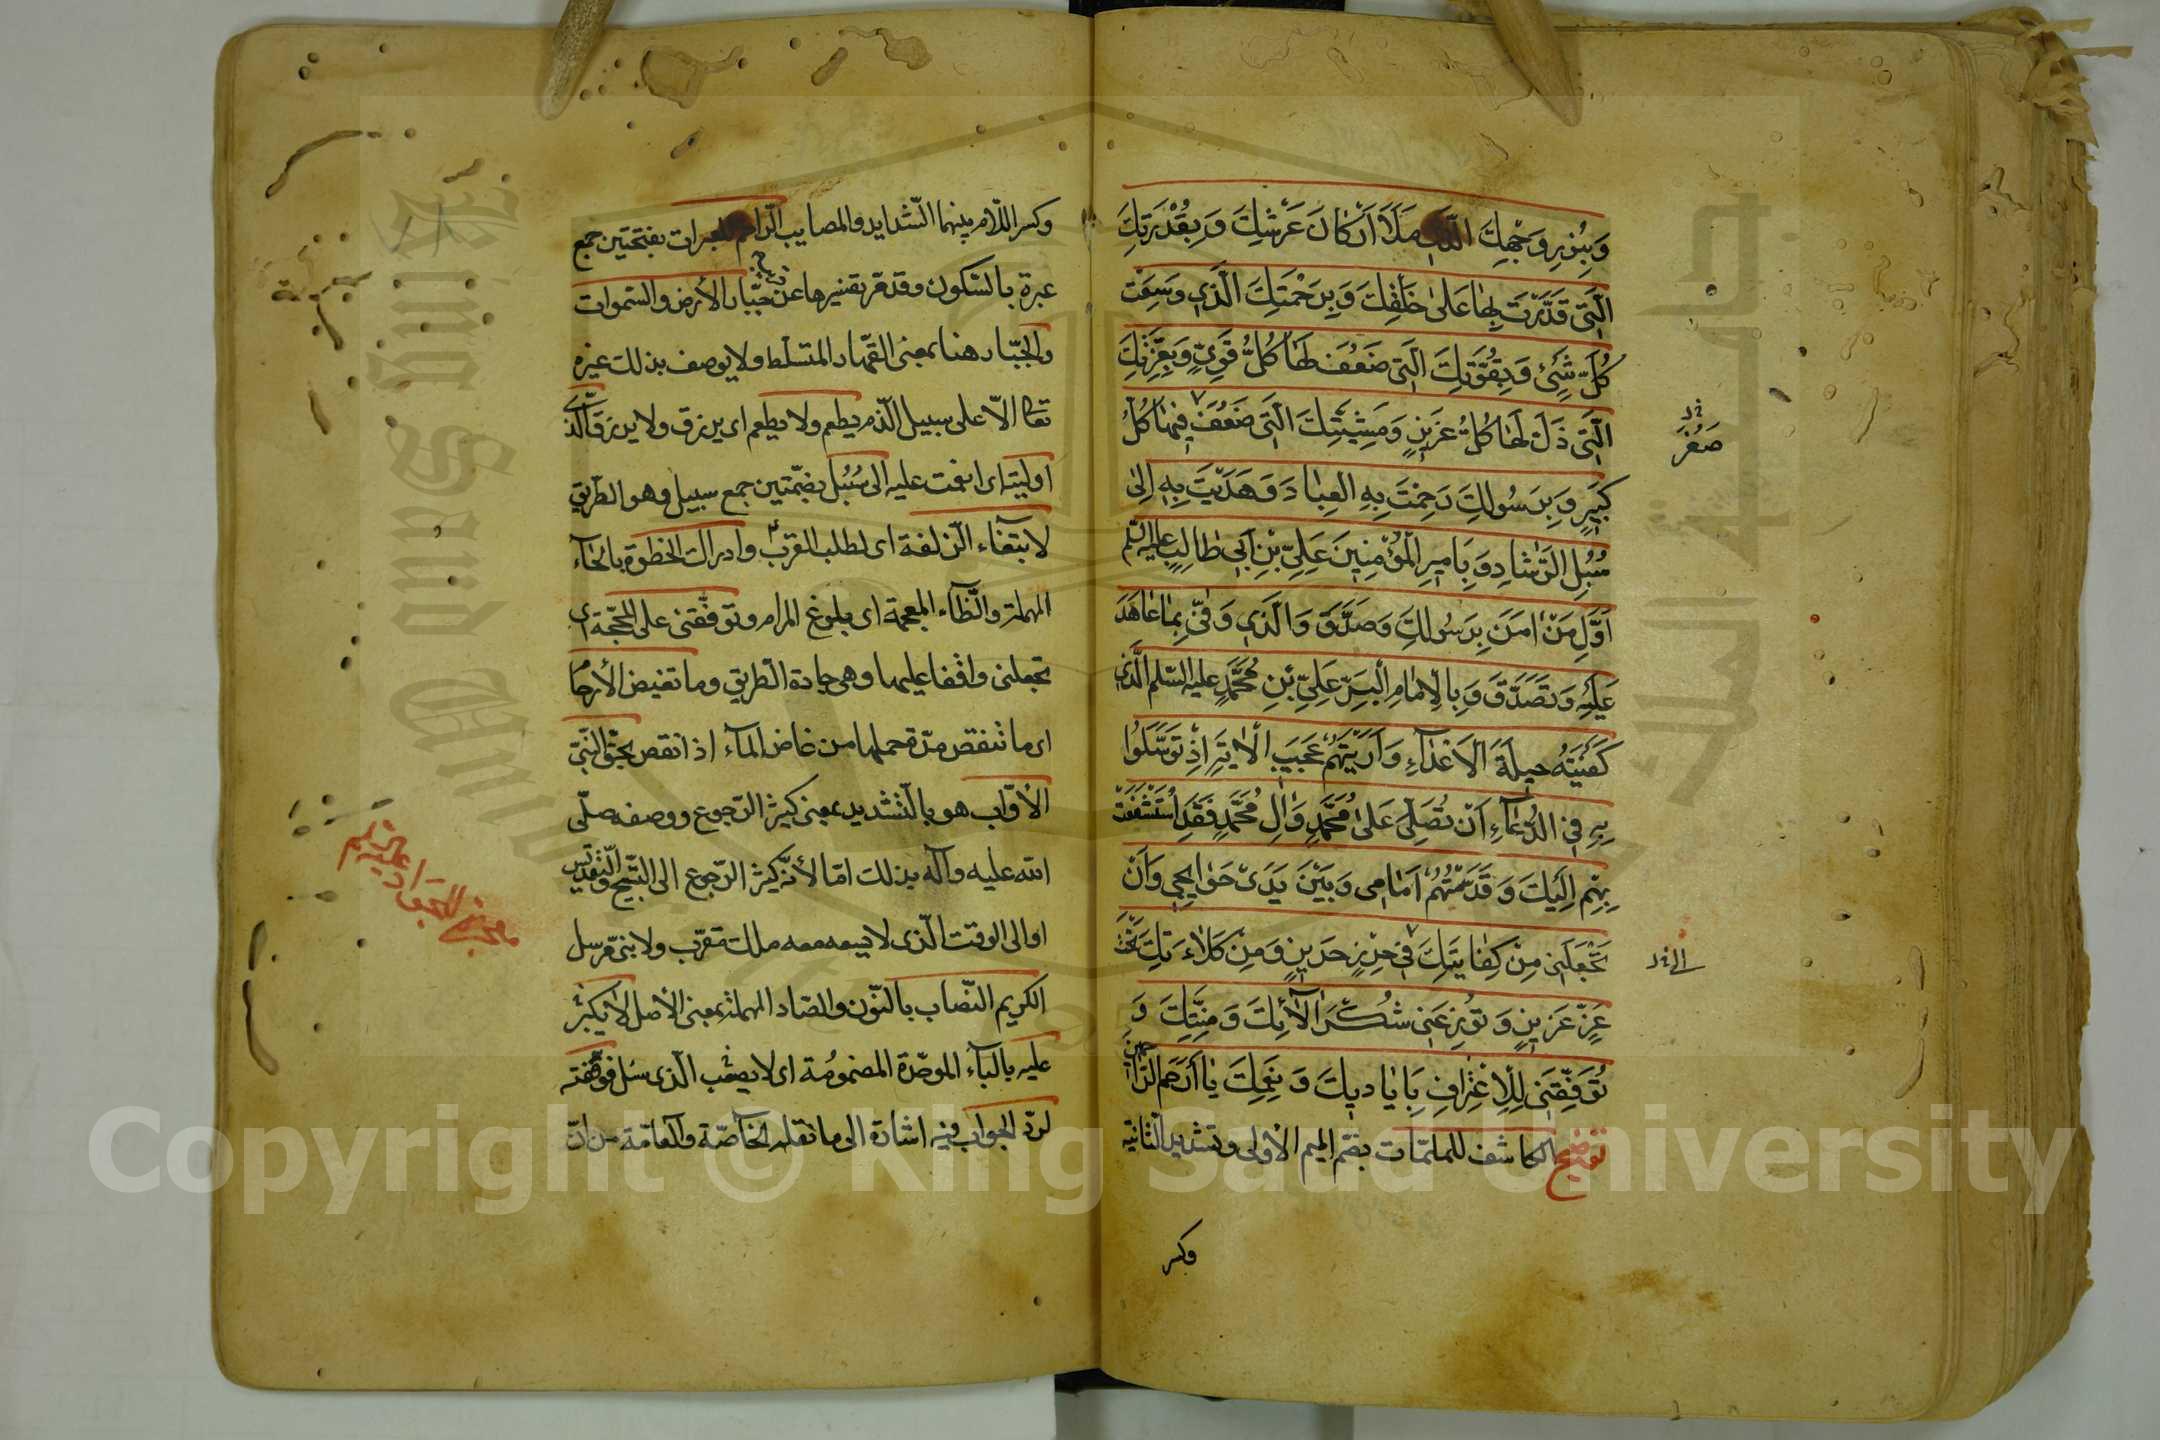 وَبِنُورِ وَجْهِكَ الَّذِي مَلَأَ أَرْكَانَ عَرْشِكَ وَبِقُدْرَتِكَ
الَّتِي قَدَرْتَ بِهَا عَلَىٰ خَلْقِكَ وَبِرَحْمَتِكَ الَّذِي وَسِعَتْ
كُلَّ شَيْءٍ وَبِقُوَّتِكَ الَّتِي ضَعُفَ لَهَا كُلُّ قَوِيٍّ وَبِعِزَّتِكَ
الَّتِي ذَلَّ لَهَا كُلُّ عَزِيزٍ وَمَشِيَّتِكَ الَّتِي ضَعُفَ فِيهَا كُلُّ
صَغُرَ
كَبِيرٍ وَبِرَسُولِكَ رَحِمْتَ بِهِ الْعِبَادَ وَهَدَيْتَ بِهِ إِلَىٰ
سُبُلِ الرَّشَادِ وَبِأَمِيرِ الْمُؤْمِنِينَ عَلِيِّ بْنِ أَبِي طَالِبٍ عليه السّلم
أَوَّلِ مَنْ آمَنَ بِرَسُولِكَ وَصَدَّقَ وَالَّذِي وَفَىٰ بِمَا عَاهَدَ
عَلَيْهِ وَتَصَدَّقَ وَبِالْإِمَامِ الْبَرِّ عَلِيِّ بْنِ مُحَمَّدٍ عليه السّلم الَّذِي
كَفَيْتَهُ حِيلَةَ الْأَعْدَاءِ وَأَرَيْتَهُمْ عَجِيبَ الْآيَةِ إِذْ تَوَسَّلُوا
بِهِ فِي الدُّعَاءِ أَنْ تُصَلِّيَ عَلَىٰ مُحَمَّدٍ وَآلِ مُحَمَّدٍ فَقَدِ اسْتَشْفَعْتُ
بِهِمْ إِلَيْكَ وَقَدَّمْتُهُمْ أَمَامِي وَبَيْنَ يَدَيْ حَوَائِجِي وَأَنْ
تَجْعَلَنِي مِنْ كِفَايَتِكَ فِي حِرْزٍ حَرِيزٍ وَمِنْ كَلَاءَتِكَ تَحْتَ
عِزٍّ عَزِيزٍ وَتُوزِعَنِي شُكْرَ آلَائِكَ وَمِنَّتِكَ وَ
تُوَفِّقَنِي لِلِاعْتِرَافِ بِأَيَادِيكَ وَنِعَمِكَ يَا أَرْحَمَ الرَّاحِمِينَ
توضيح الكاشف للملمّات بضمّ الميم الأولى وتشديد الثانية
وكسر
وكسر اللّام بينهما الشّدايد والمصايب الرّاحم للعبرات بفتحتين جمع
عبرة بالسّكون وقد مرّ تفسيرها عن جبّار الأرض والسّموات
والجبّار هنا بمعنى القهّار المتسلّط ولا يوصف بذلك غيره
تعا الّا على سبيل الذّم يطعم ولا يطعم اى يرزق ولا يرزق الّذى
اوليته اى انعمت عليه الى سُبُل بضمّتين جمع سبيل وهو الطّريق
لابتغاء الزّلفة اى لطلب القرب وادراك الحظوة بالحآء
المهملة والظآء المعجمة اى بلوغ المرام وتوقفنى على المحجّة اى
تجعلنى واقفا عليها وهى جادة الطّريق وما تغيض الأرحام
اى ما تنقص مدّة حملها من غاض المآء اذا نقص بحقّ النّبيّ
الأوّاب هو بالتّشديد بمعنى كثير الرّجوع ووصفه صلّى
الله عليه وآله بذلك امّا لأنّه كثير الرّجوع الى التّسبيح والتّقديس
او الى الوقت الّذى لا يسعه معه ملك مقرّب ولا نبىّ مرسل
الكريم النّصاب بالنّون والصّاد المهملة بمعنى الأصل لا يكبر
عليه بالبآء الموحّدة المضمومة اى لا يصعب الّذى سئل فوفقته
لردّ الجواب فيه اشارة الى ما نقله الخاصّة والعامّة من انّ
Copyright © King Saud University